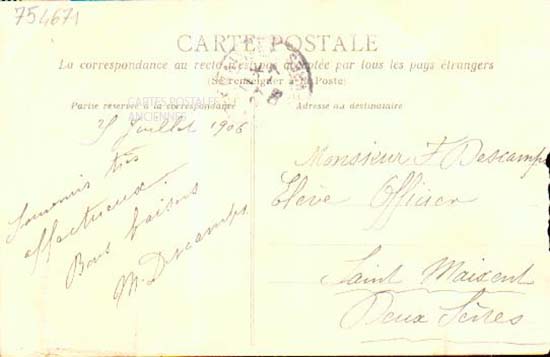 754671
CARTE POSTALE
La correspondance au recto n'est pas acceptée par tous les pays étrangers
(Se renseigner à la Poste)
Partie réservée à la correspondance
Adresse au destinataire
CARTES POSTALES
ANCIENNES
25 Juillet 1906
Souvenirs très
affectueux.
Bons baisers
M. Descamps
Monsieur F. Descamps
Elève Officier
Saint Maixent
Deux Sèvres